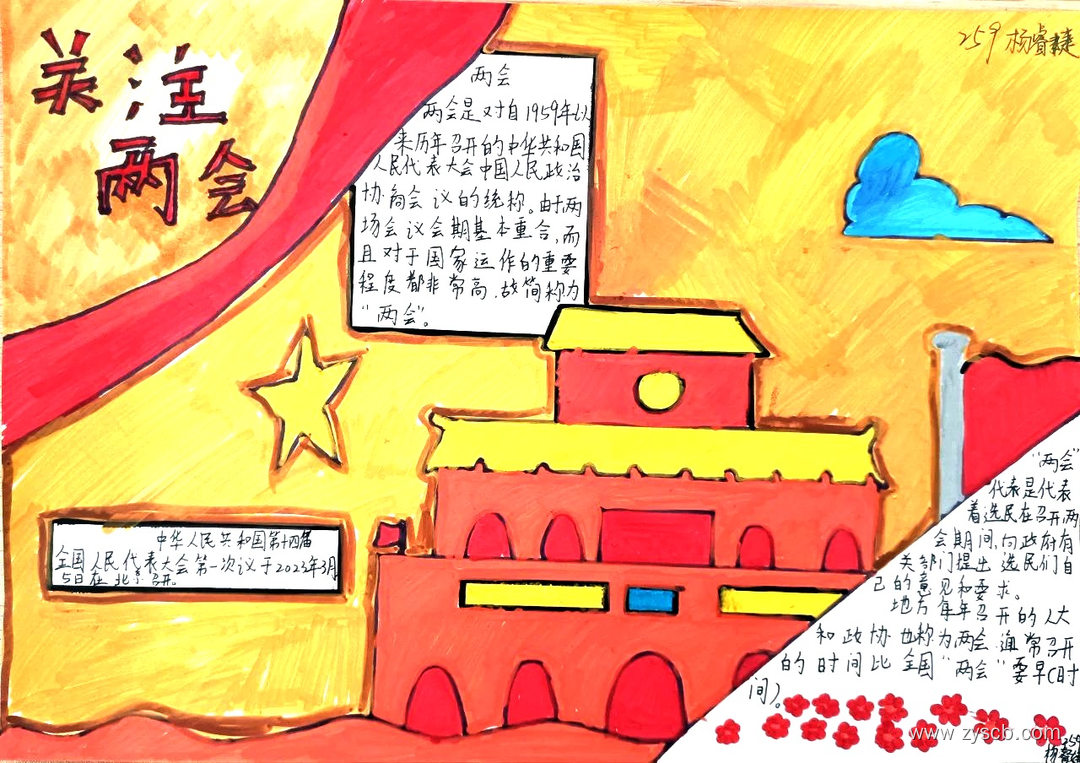 关注
两会
259 杨睿婕
两会
两会是对自1959年以
来历年召开的中华共和国
人民代表大会中国人民政治
协商会议的统称。由于两
场会议会期基本重合,而
且对于国家运作的重要
程度都非常高.故简称为
“两会”。
中华人民共和国第十四届
全国人民代表大会第一次议于2023年3月
5日在北京召开.
“两会”
代表是代表
着选民在召开两
会期间,向政府有
关部门提出选民们自
己的意见和要求。
地方每年召开的人大
和政协也称为两会.通常召开
的时间比全国“两会”要早(时
间)。
www.zyscb.com
259
杨睿婕